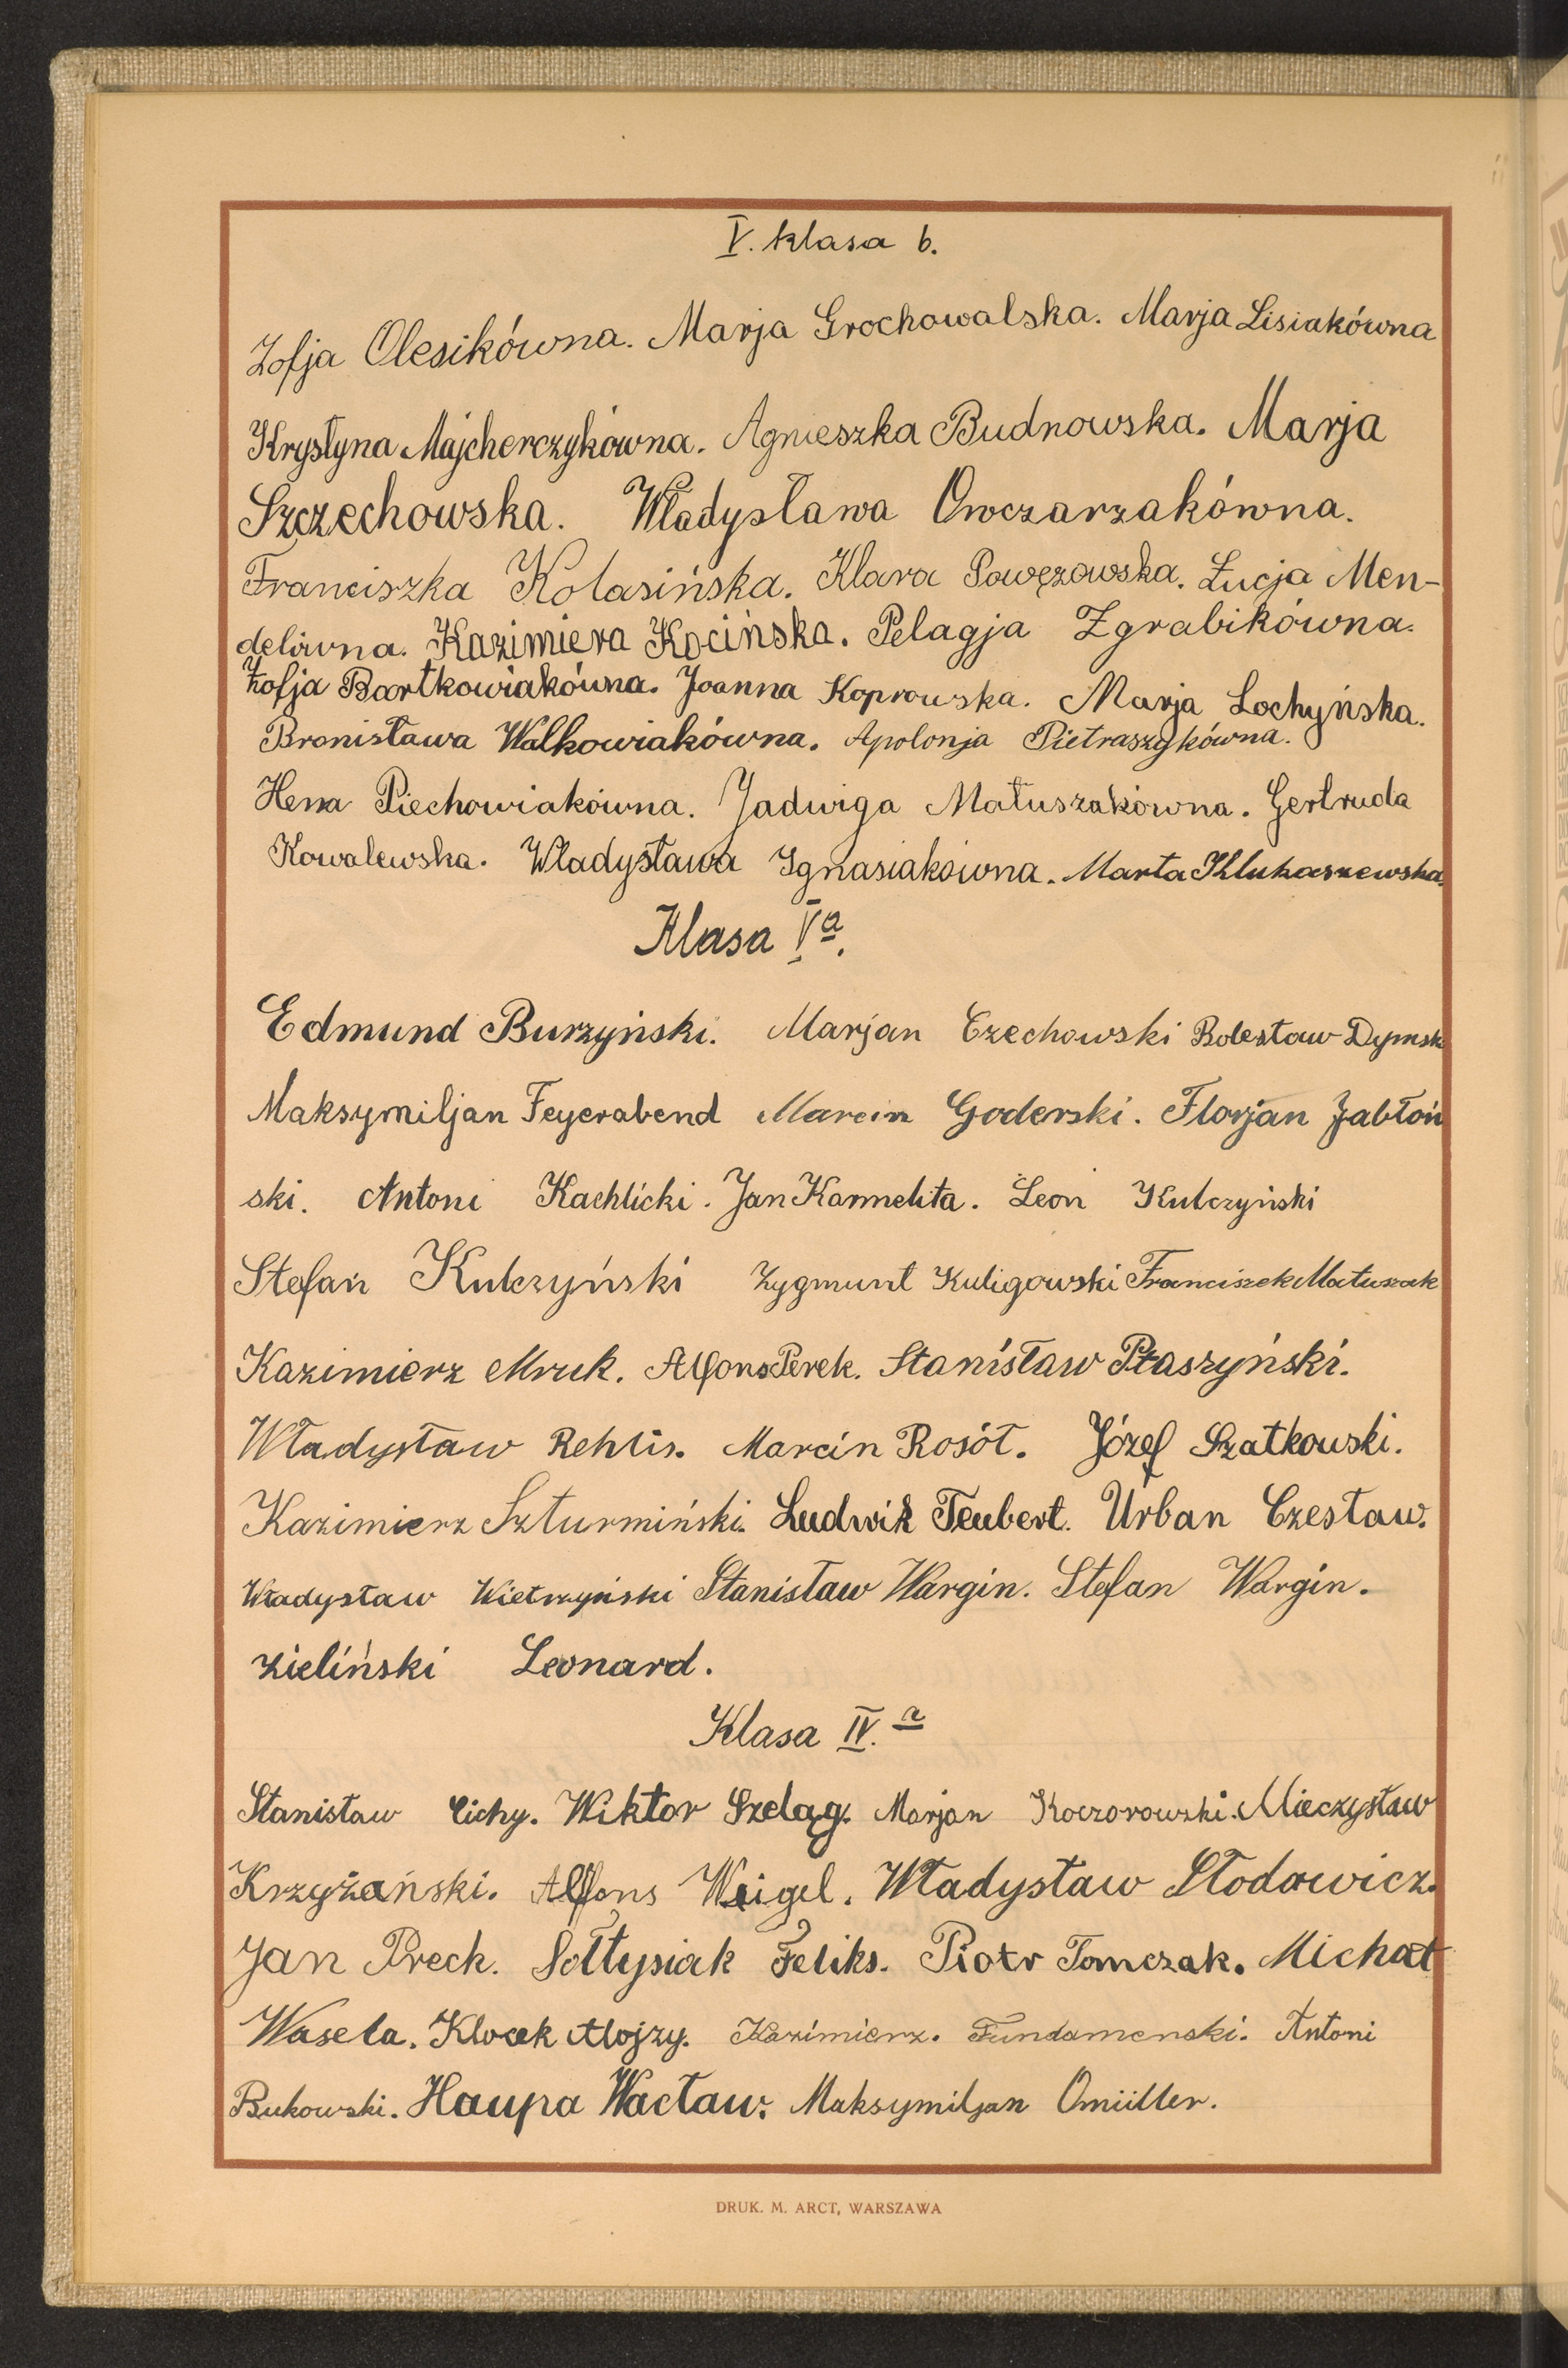 V. klasa b.
Zofja Olesikówna. Marja Grochowalska. Marja Lisiakówna
Krystyna Majcherczykówna. Agnieszka Budnowska. Marja
Szczechowska. Władysława Owczarzakówna.
Franciszka Kolasińska. Klara Powęzowska. Łucja Men-
delówna. Kazimiera Kocińska. Pelagja Zgrabikówna.
Zofja Bartkowiakówna. Joanna Koprowska. Marja Lochyńska.
Bronisława Walkowiakówna. Apolonja Pietraszykówna.
Hena Piechowiakówna. Jadwiga Matuszakówna. Gertruda
Kowalewska. Władysława Ignasiakówna. Marta Klukaszewska.
Klasa Va.
Edmund Burzyński. Marjan Czechowski Bolesław Dymsk
Maksymiljan Feyerabend Marcin Goderski. Florjan Jabłoń
ski. Antoni Kachlicki. Jan Karmelita. Leon Kulczyński
Stefan Kulczyński Zygmunt Kuligowski Franciszek Matuszak
Kazimierz Mruk. Alfons Perek. Stanisław Ptaszyński.
Władysław Rehlis. Marcin Rosół. Józef Szatkowski.
Kazimierz Szturmiński. Ludwik Teubert. Urban Czesław.
Władysław Wietrzyński Stanisław Wargin. Stefan Wargin.
Zieliński Leonard.
Klasa IV. a
Stanisław Cichy. Wiktor Szeląg. Marjan Koczorowski. Mieczysław
Krzyżański. Alfons Weigel. Władysław Słodowicz.
Jan Preck. Sołtysiak Feliks. Piotr Tomczak. Michał
Wasela. Klocek Alojzy. Kazimierz. Fundamenski. Antoni
Bukowski. Haupa Wacław. Maksymiljan Omüller.
DRUK. M. ARCT, WARSZAWA